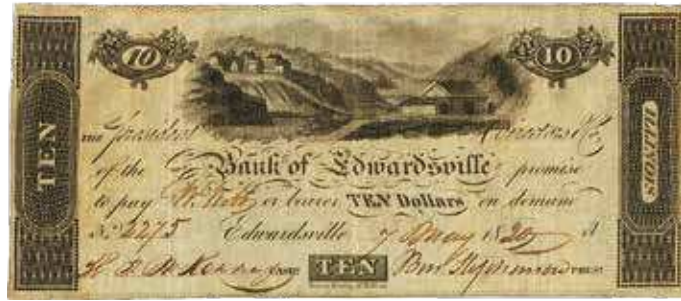 10 10
TEN
ILLINOIS
THE President Directors & Co.
of the Bank of Edwardsville promise
to pay or bearer TEN Dollars on demand
No. 2275 Edwardsville 7 May 1820
CASHR TEN PREST